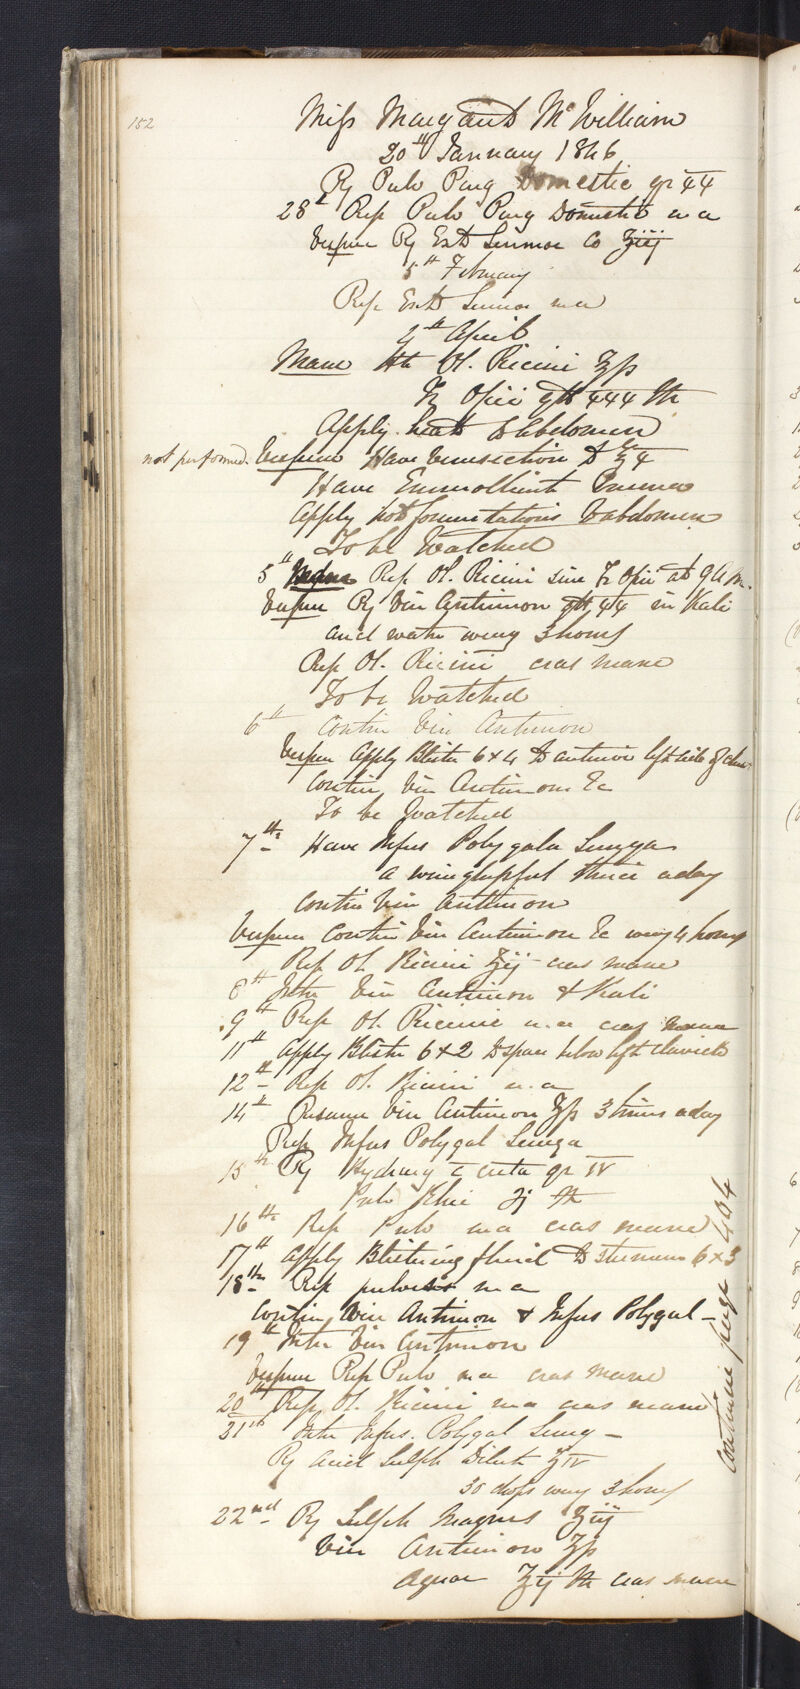 152
Miss Margaret McWilliam
20th January 1846
Rx Pulv Purg Domestic gr XX
28th Rep Pulv Purg Domestic m a
Vespere Rx Ext Sennae Co ʒiij
5th February
Rep Ext Sennae m a
4th April
Mane Ht Ol. Ricini ʒfs
Tr Opii gtt XXX St
Apply heat to Abdomen
not performed. Vespere Have Venesection to ℥X
Have Emmollient Enema
Apply hot fomentations to abdomen
To be Watched
5th Rep Ol. Ricini sine Tr Opii at 9 A.M.
Vespere Rx Vin Antimon gtt XX in Kali
and water every 3 hours
Rep Ol. Ricini cras mane
To be Watched
6th Contin Vin Antimon
Vespere Apply Blister 6 x 4 to anterior left side of chest
Contin Vin Antimon &c
To be Watched
7th Have Infus Polygala Senega
a wineglassful thrice a day
Contin Vin Antimon
Vespere Contin Vin Antimon &c every 4 hours
Rep Ol Ricini ʒij cras mane
8th Intr Vin Antimon & Kali
9th Rep Ol. Ricini m.a cras mane
11th Apply Blister 6 x 2 to space below left clavicle
12th Rep Ol. Ricini m.a
14th Resume Vin Antimon ʒfs 3 times a day
Rep Infus Polygal Senega
15th Rx Hydrarg c creta gr IV
Pulv Rhei ℈j St
16th Rep Pulv m a cras mane
17th Apply Blistering fluid to sternum 6 x 3
18th Rep pulveris m a
Contin Vin Antimon & Infus Polygal –
19th Intr Vin Antimon
Vespere Rep Pulv m.a cras mane
20th Rep Ol. Ricini m a cras mane
21st Intr Infus. Polygal Seneg –
Rx Acid Sulph Dilut ʒIV
30 drops every 3 hours
22nd Rx Sulph Magnes ʒiij
Vin Antimon ʒfs
Aquae ℥ij St cras mane
Continue page 404